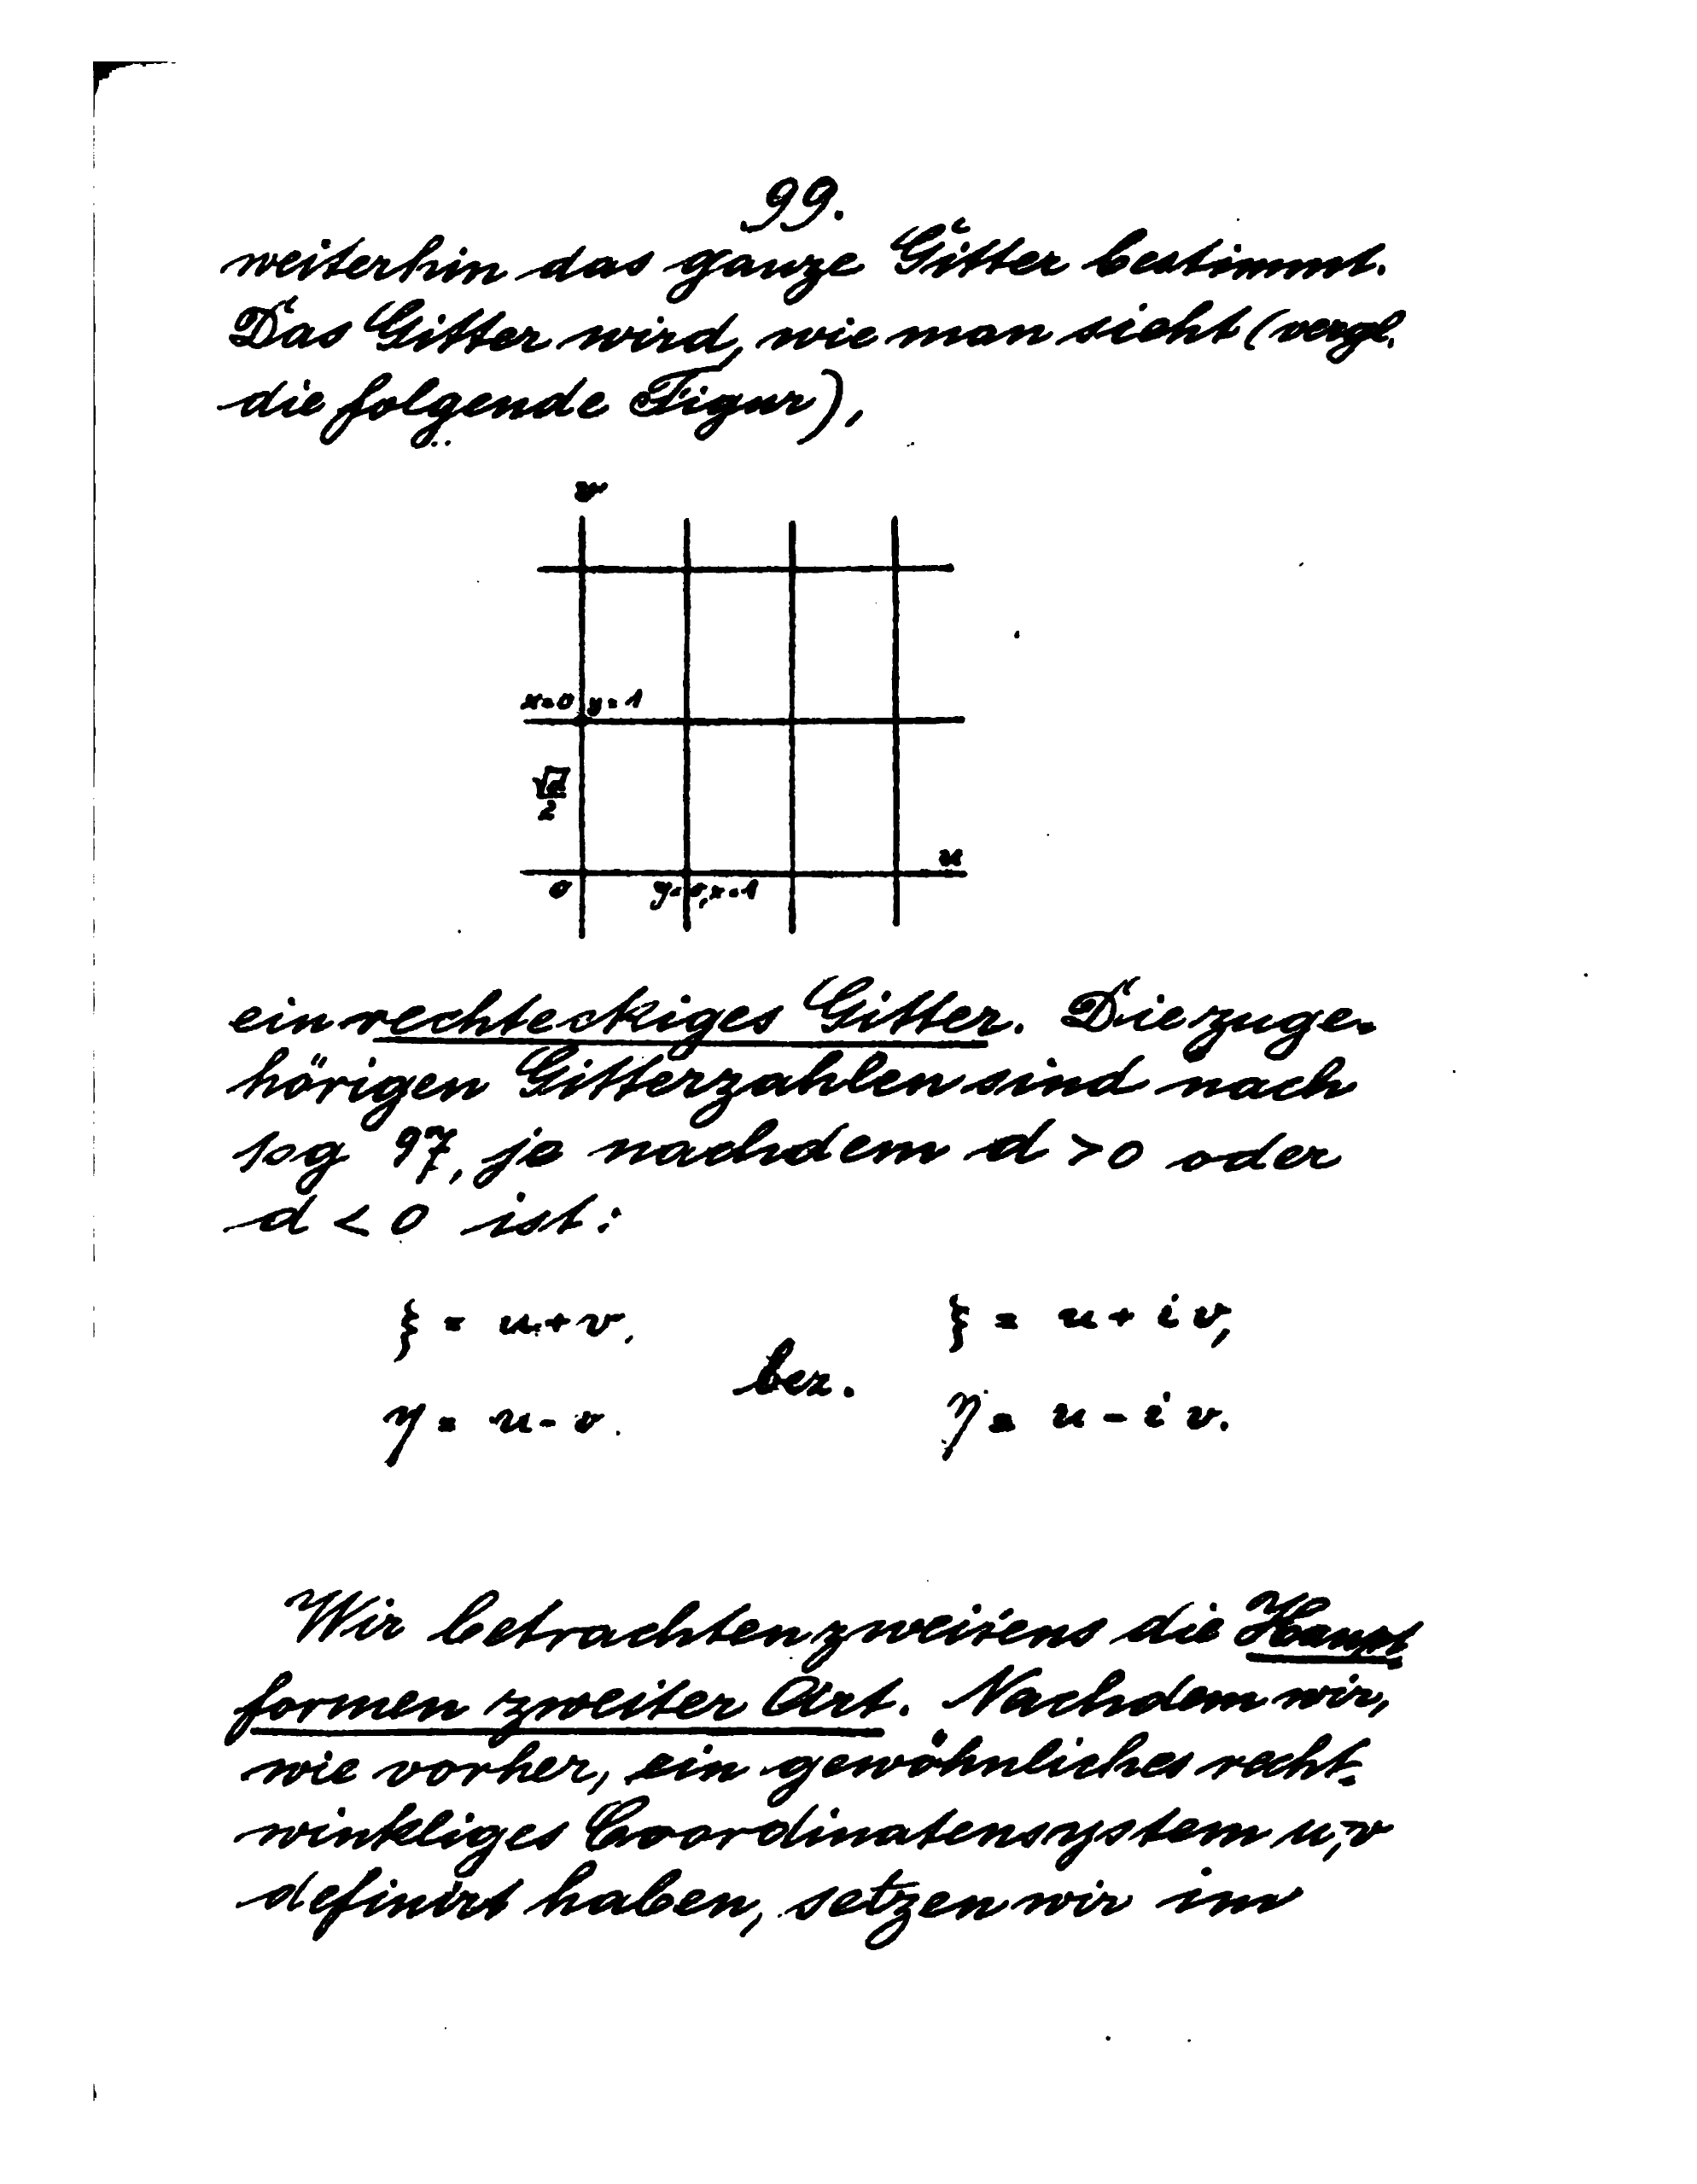 99.
weiterhin das ganze Gitter bestimmt.
Das Gitter wird, wie man sieht (vergl.
die folgende Figur),
v
x=0 y=1
√d
2
u
0 y=0, x=1
ein rechteckiges Gitter. Die zuge-
hörigen Gitterzahlen sind nach
pag 97, je nachdem d > 0 oder
d < 0 ist:
ξ = u+v, ξ = u + iv,
bez.
η = u-v. η = u - iv.
Wir betrachten zweitens die Haupt
formen zweiter Art. Nachdem wir,
wie vorher, ein gewöhnliches recht-
winkliges Coordinatensystem u, v
definirt haben, setzen wir im